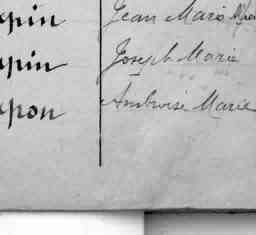 pin Jean Marie
pin Joseph Marie
pon Ambroise Marie